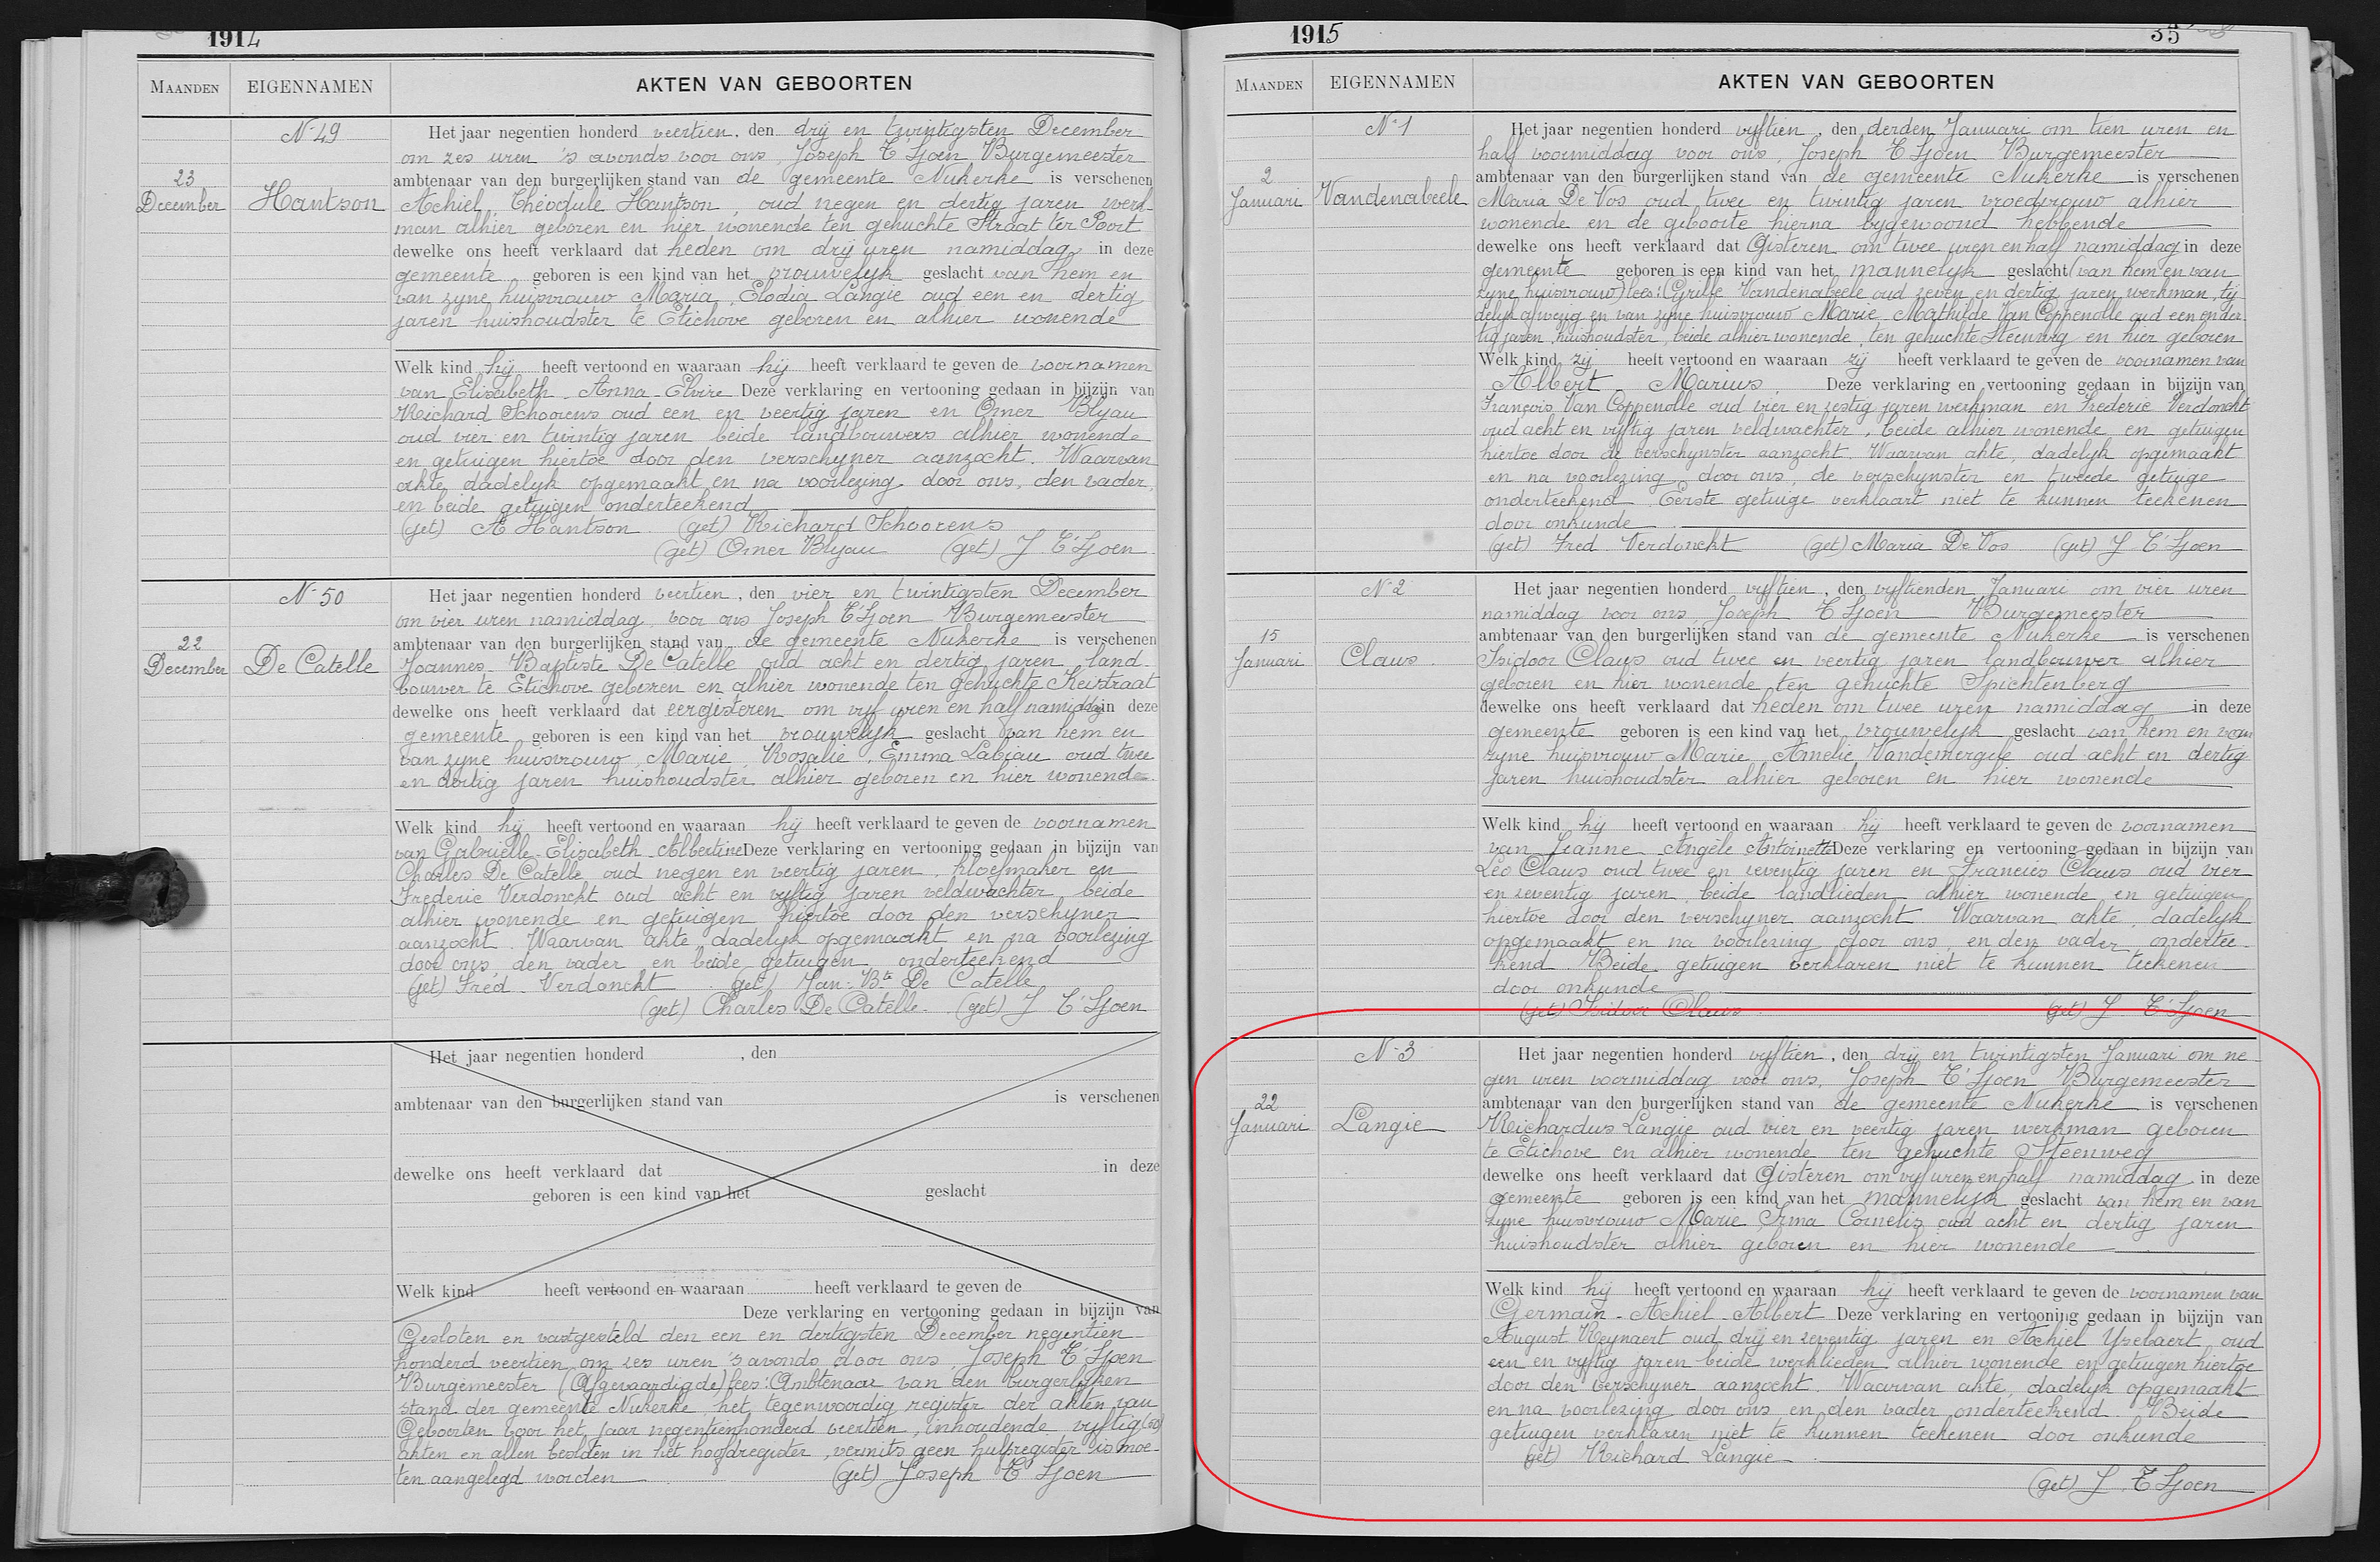 1914
MAANDEN EIGENNAMEN AKTEN VAN GEBOORTEN
N-49
23
December
Hantson
Het jaar negentien honderd veertien, den drij en twintigsten December
om zes uren 's avonds voor ons, Joseph T'Sjoen Burgemeester
ambtenaar van den burgerlijken stand van de gemeente Nukerke is verschenen
Achiel, Théodule Hantson, oud negen en dertig jaren werk-
man alhier geboren en hier wonende ten gehuchte Straat ter Poort
dewelke ons heeft verklaard dat heden om drij uren namiddag in deze
gemeente geboren is een kind van het vrouwelyk geslacht van hem en
van zyne huisvrouw Maria, Elodia Langie oud een en dertig
jaren huishoudster te Etichove geboren en alhier wonende
Welk kind hij heeft vertoond en waaraan hij heeft verklaard te geven de voornamen
van Elisabeth - Anna - Elvire Deze verklaring en vertooning gedaan in bijzijn van
Richard Schoorens oud een en veertig jaren en Omer Blyau
oud vier en twintig jaren beide landbouwers alhier wonende
en getuigen hiertoe door den verschyner aanzocht. Waarvan
akte, dadelyk opgemaakt en na voorlezing door ons, den vader,
en beide getuigen onderteekend
(get) A Hantson (get) Richard Schoorens
(get) Omer Blyau (get) J. T'Sjoen
N-50
22
December
De Catelle
Het jaar negentien honderd veertien, den vier en twintigsten December
om vier uren namiddag, voor ons Joseph T'Sjoen Burgemeester
ambtenaar van den burgerlijken stand van de gemeente Nukerke is verschenen
Joannes - Baptiste De Catelle oud acht en dertig jaren, land-
bouwer te Etichove geboren en alhier wonende ten gehuchte Keistraat
dewelke ons heeft verklaard dat eergisteren om vyf uren en half namiddag in deze
gemeente geboren is een kind van het vrouwelyk geslacht van hem en
van zyne huisvrouw, Marie, Rosalie, Emma Labiau oud twee
en dertig jaren huishoudster alhier geboren en hier wonende.
Welk kind hij heeft vertoond en waaraan hij heeft verklaard te geven de voornamen
van Gabrielle - Elisabeth - Albertine Deze verklaring en vertooning gedaan in bijzijn van
Charles De Catelle oud negen en veertig jaren, kloefmaker en
Frederic Verdonckt oud acht en vyftig jaren veldwachter, beide
alhier wonende en getuigen hiertoe door den verschyner
aanzocht. Waarvan akte dadelyk opgemaakt en na voorlezing
door ons, den vader en beide getuigen onderteekend
(get) Fréd. Verdonckt (get) Jan-Bte De Catelle
(get) Charles De Catelle. (get) J. T'Sjoen
Het jaar negentien honderd , den
ambtenaar van den burgerlijken stand van is verschenen
dewelke ons heeft verklaard dat in deze
geboren is een kind van het geslacht
Welk kind heeft vertoond en waaraan heeft verklaard te geven de
Deze verklaring en vertooning gedaan in bijzijn van
Gesloten en vastgesteld den een en dertigsten December negentien
honderd veertien om zes uren 's avonds door ons, Joseph T'Sjoen
Burgemeester (Afgevaardigde) lees: Ambtenaar van den burgerlyken
stand der gemeente Nukerke, het tegenwoordig register der akten van
Geboorten voor het jaar negentienhonderd veertien, inhoudende vyftig (50)
akten en allen besloten in het hoofdregister, vermits geen hulpregister is moe-
ten aangelegd worden (get) Joseph T'Sjoen
1915 35
MAANDEN EIGENNAMEN AKTEN VAN GEBOORTEN
N-1
2
Januari
Vandenabeele
Het jaar negentien honderd vyftien, den derden Januari om tien uren en
half voormiddag voor ons, Joseph T'Sjoen Burgemeester
ambtenaar van den burgerlijken stand van de gemeente Nukerke is verschenen
Maria De Vos oud twee en twintig jaren vroedvrouw alhier
wonende en de geboorte hierna bygewoond hebbende
dewelke ons heeft verklaard dat Gisteren om twee uren en half namiddag in deze
gemeente geboren is een kind van het mannelyk geslacht (van hem en van
zyne huisvrouw) lees: Cyrille Vandenabeele oud zeven en dertig jaren werkman, tij-
delyk afwezig en van zyne huisvrouw Marie Mathilde Van Coppenolle oud een en der-
tig jaren, huishoudster, beide alhier wonende, ten gehuchte Steenweg en hier geboren
Welk kind zij heeft vertoond en waaraan zij heeft verklaard te geven de voornamen van
Albert Marius. Deze verklaring en vertooning gedaan in bijzijn van
François Van Coppenolle oud vier en zestig jaren werkman en Frederic Verdonckt
oud acht en vyftig jaren veldwachter, beide alhier wonende en getuigen
hiertoe door de verschynster aanzocht. Waarvan akte, dadelyk opgemaakt
en na voorlezing door ons, de verschynster en tweede getuige
onderteekend. Eerste getuige verklaart niet te kunnen teekenen
door onkunde.
(get) Fred. Verdonckt (get) Maria De Vos (get) J T'Sjoen
N-2
15
Januari
Claus
Het jaar negentien honderd vyftien, den vyftienden Januari om vier uren
namiddag voor ons, Joseph T'Sjoen Burgemeester
ambtenaar van den burgerlijken stand van de gemeente Nukerke is verschenen
Isidoor Claus oud twee en veertig jaren landbouwer alhier
geboren en hier wonende ten gehuchte Spichtenberg
dewelke ons heeft verklaard dat heden om twee uren namiddag in deze
gemeente geboren is een kind van het vrouwelyk geslacht van hem en van
zyne huisvrouw Marie Amelie Vandemergele oud acht en dertig
jaren huishoudster alhier geboren en hier wonende
Welk kind hij heeft vertoond en waaraan hij heeft verklaard te geven de voornamen
van Jeanne Angèle Antoinette Deze verklaring en vertooning gedaan in bijzijn van
Léo Claus oud twee en zeventig jaren en Francies Claus oud vier
en zeventig jaren, beide landlieden alhier wonende en getuigen
hiertoe door den verschyner aanzocht. Waarvan akte, dadelyk
opgemaakt en na voorlezing door ons, en den vader ondertee-
kend. Beide getuigen verklaren niet te kunnen teekenen
door onkunde
(get) Isidoor Claus (get) J. T'Sjoen
N-3
22
Januari
Langie
Het jaar negentien honderd vyftien, den drij en twintigsten Januari om ne-
gen uren voormiddag voor ons, Joseph T'Sjoen Burgemeester
ambtenaar van den burgerlijken stand van de gemeente Nukerke is verschenen
Richardus Langie oud vier en veertig jaren werkman geboren
te Etichove en alhier wonende ten gehuchte Steenweg
dewelke ons heeft verklaard dat Gisteren om vyf uren en half namiddag in deze
gemeente geboren is een kind van het mannelyk geslacht van hem en van
zyne huisvrouw Marie Irma Cornelis oud acht en dertig jaren
huishoudster alhier geboren en hier wonende
Welk kind hij heeft vertoond en waaraan hij heeft verklaard te geven de voornamen van
Germain - Achiel - Albert Deze verklaring en vertooning gedaan in bijzijn van
August Reynaert oud drij en zeventig jaren en Achiel Ysebaert oud
een en vyftig jaren beide werklieden alhier wonende en getuigen hiertoe
door den verschyner aanzocht. Waarvan akte, dadelyk opgemaakt
en na voorlezing door ons en den vader onderteekend. Beide
getuigen verklaren niet te kunnen teekenen door onkunde
(get) Richard Langie.
(get) J. T'Sjoen